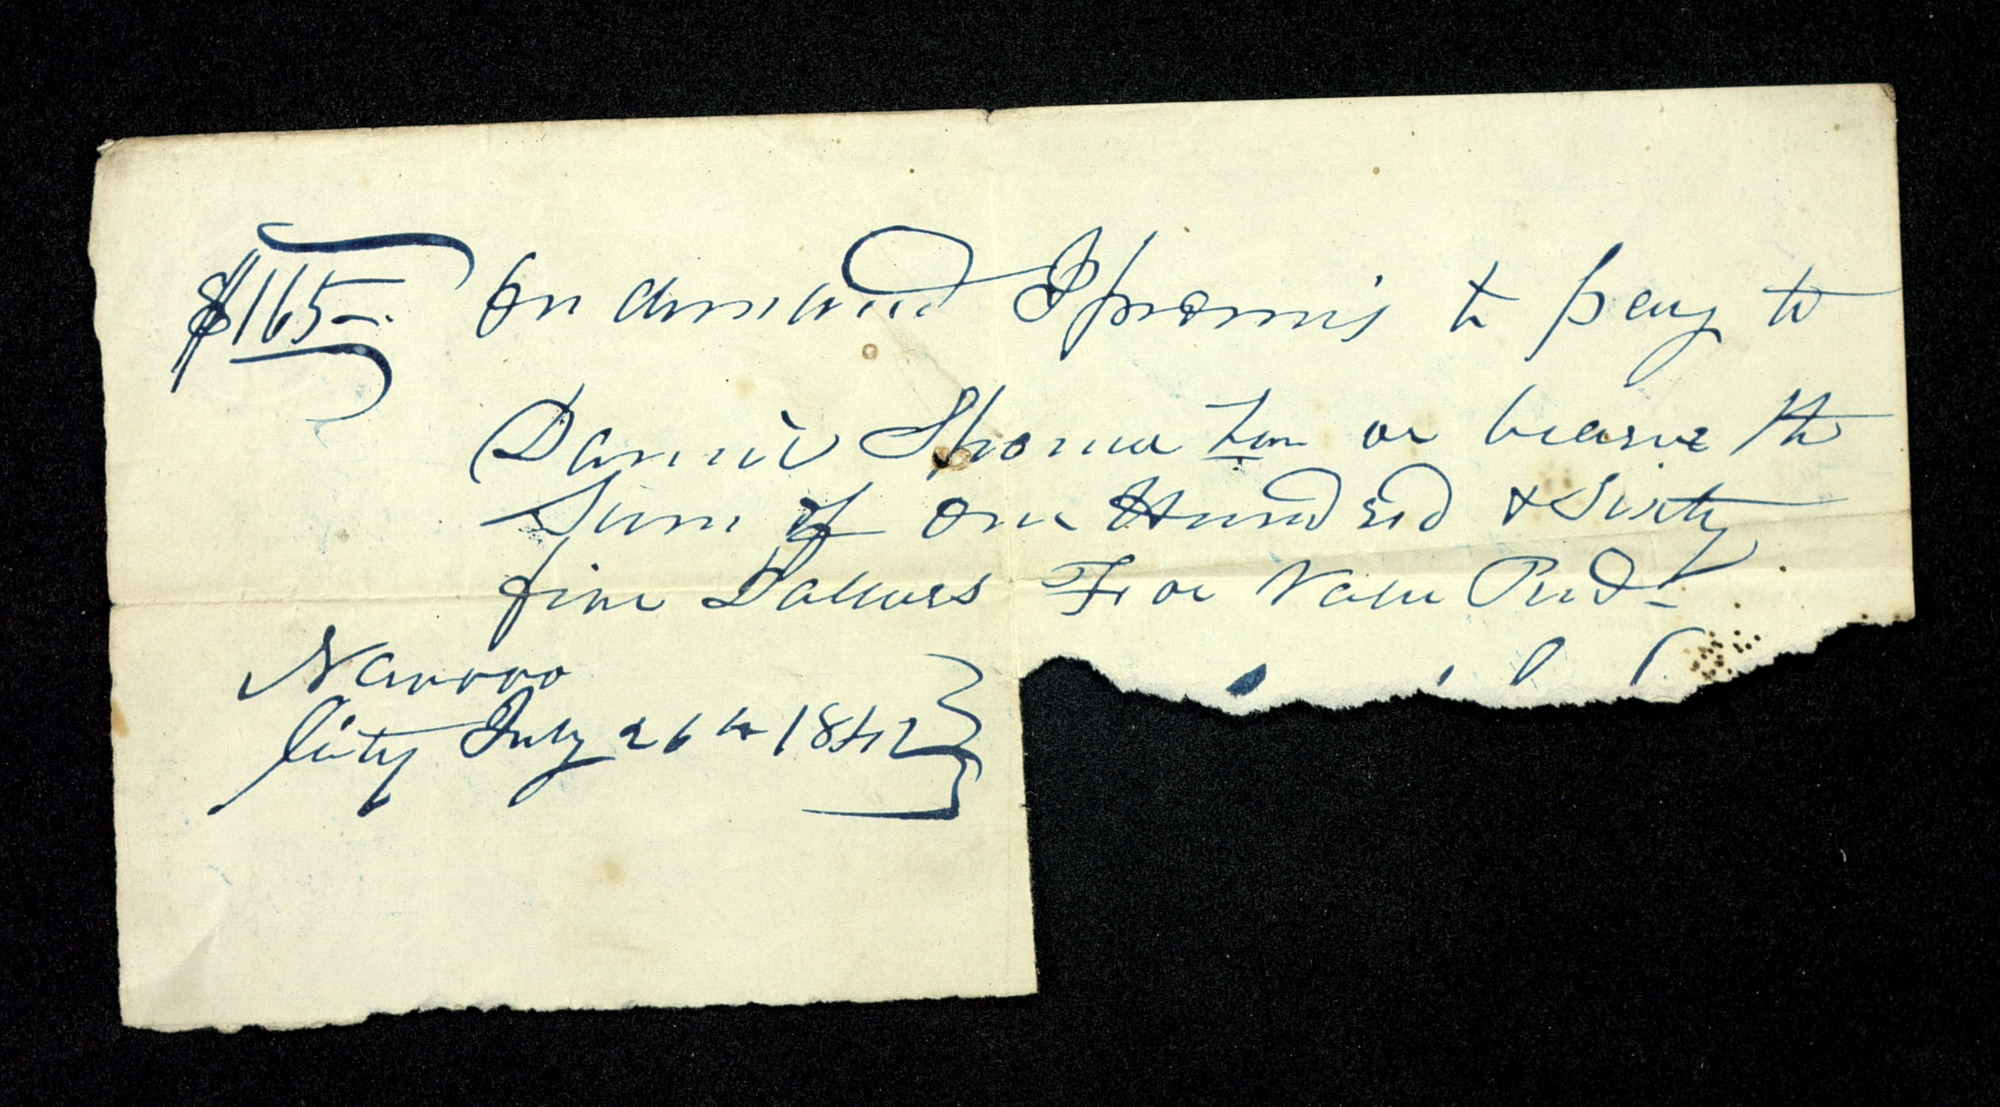 $165-. On demand I promis to pay to
Daniel or bearer the
Sum of One Hundred & Sixty
five Dollars For Valu Recd-
Nauvoo
City July 26th 1842